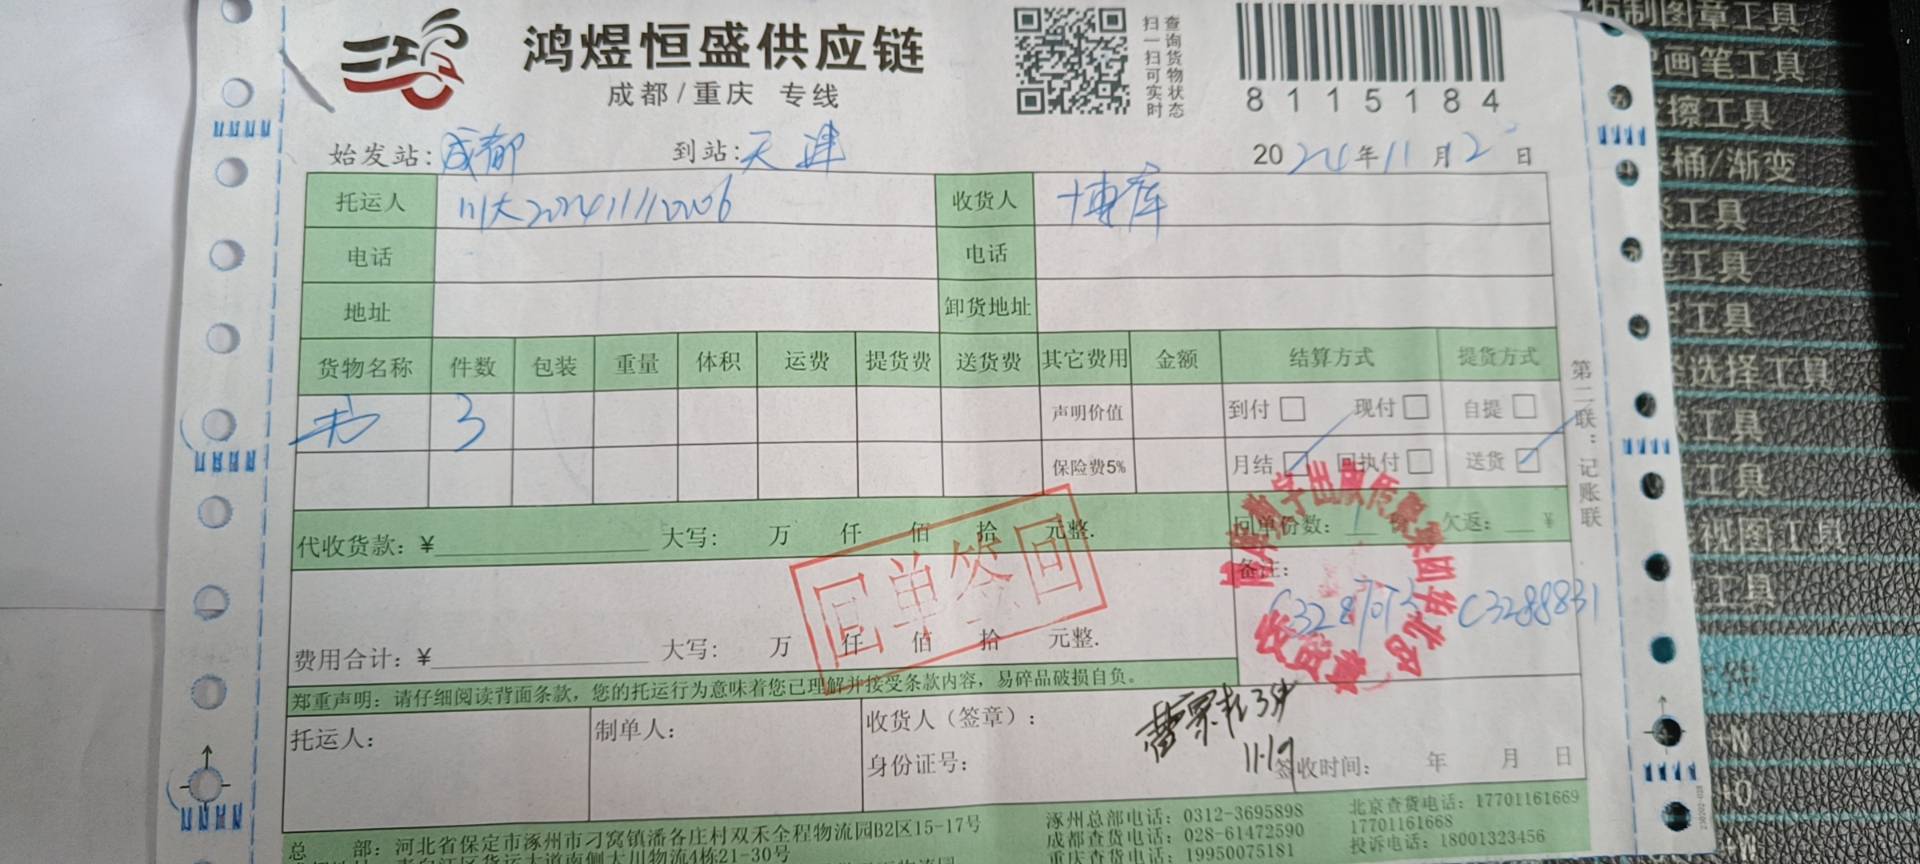 鸿煜恒盛供应链
成都/重庆 专线
查询货物状态
扫一扫可实时
8115184
始发站：成都 到站：天津 2024年11月12日
托运人 川大20241112006 收货人 博库
电话 电话
地址 卸货地址
货物名称 件数 包装 重量 体积 运费 提货费 送货费 其它费用 金额 结算方式 提货方式
书 3 声明价值 到付 现付 自提
保险费5% 月结 回执付 送货
代收货款：¥ 大写： 万 仟 佰 拾 元整. 回单份数： 欠返： ¥
回单签回
备注：
C3288831
费用合计：¥ 大写： 万 仟 佰 拾 元整.
郑重声明：请仔细阅读背面条款，您的托运行为意味着您已理解并接受条款内容，易碎品破损自负。
托运人： 制单人： 收货人（签章）：
11.19
身份证号： 签收时间： 年 月 日
第二联：记账联
总 部：河北省保定市涿州市刁窝镇潘各庄村双禾全程物流园B2区15-17号
青白江区货运大道南侧大川物流4栋21-30号
涿州总部电话：0312-3695898
成都查货电话：028-61472590
重庆查货电话：19950075181
北京查货电话：17701161669
17701161668
投诉电话：18001323456
仿制图章工具
画笔工具
擦工具
桶/渐变
工具
选择工具
视图工具